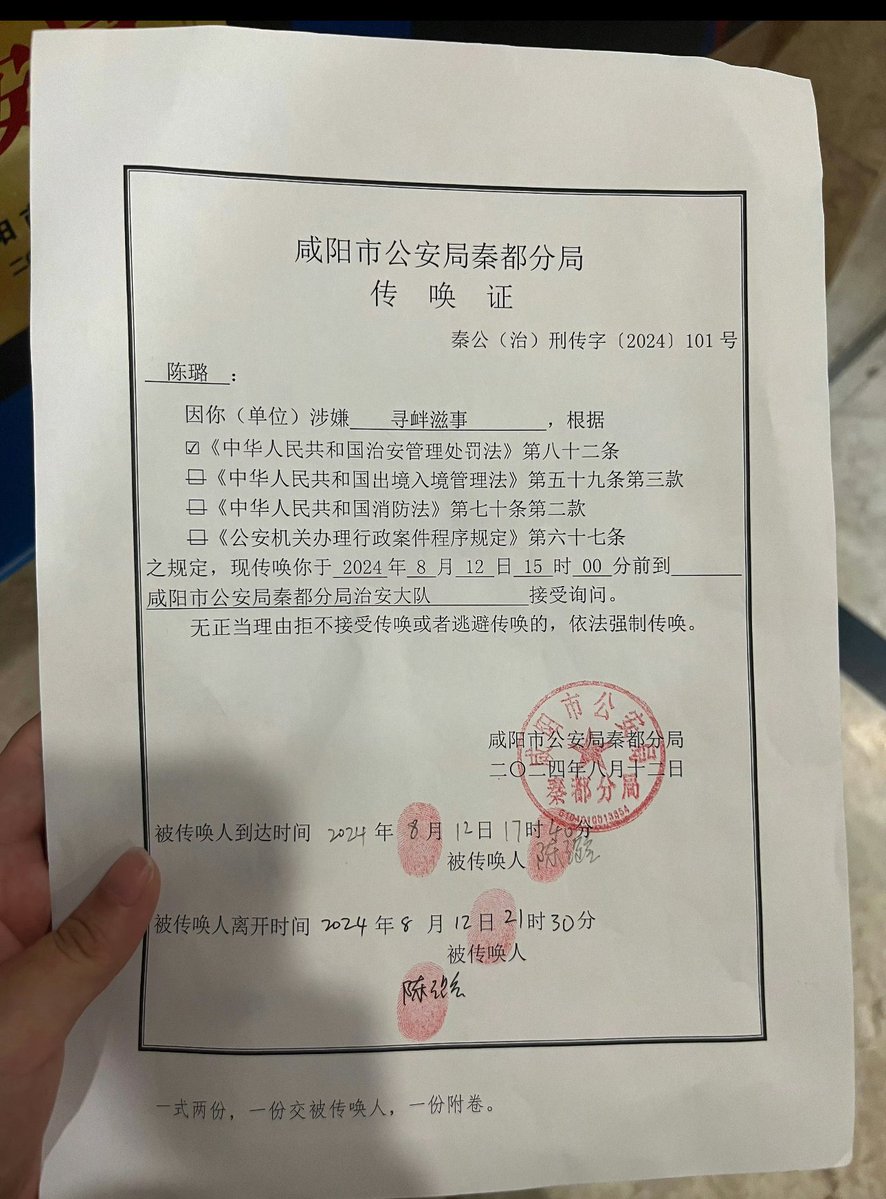 咸阳市公安局秦都分局
传 唤 证
秦公（治）刑传字〔2024〕101号
陈璐：
因你（单位）涉嫌 寻衅滋事 ，根据
☑《中华人民共和国治安管理处罚法》第八十二条
☐《中华人民共和国出境入境管理法》第五十九条第三款
☐《中华人民共和国消防法》第七十条第二款
☐《公安机关办理行政案件程序规定》第六十七条
之规定，现传唤你于 2024 年 8 月 12 日 15 时 00 分前到
咸阳市公安局秦都分局治安大队 接受询问。
无正当理由拒不接受传唤或者逃避传唤的，依法强制传唤。
咸阳市公安局秦都分局
二〇二四年八月十二日
咸阳市公安局
秦都分局
被传唤人到达时间 2024 年 8 月 12 日 17 时 40 分
被传唤人 陈璐
被传唤人离开时间 2024 年 8 月 12 日 21 时 30 分
被传唤人
陈璐
一式两份，一份交被传唤人，一份附卷。